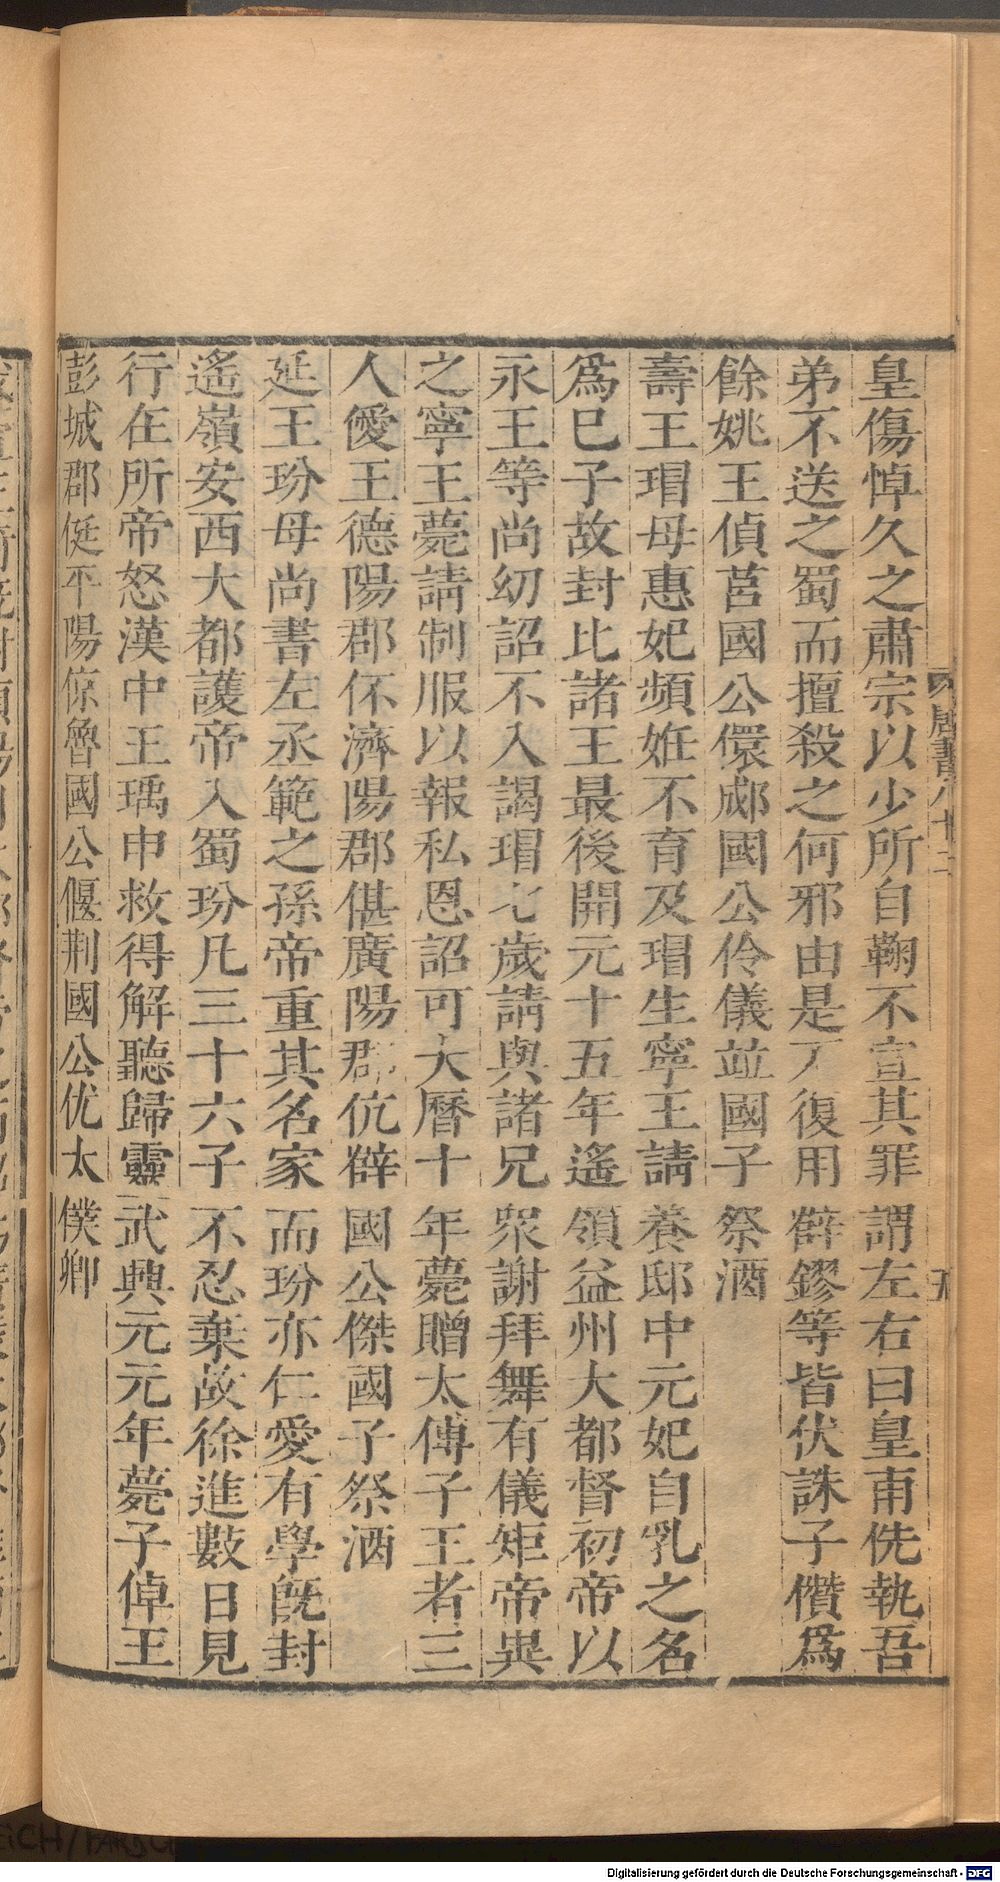 皇傷悼久之肅宗以少所自鞠不宣其罪謂左右曰皇甫侁執吾
弟不送之蜀而擅殺之何邪由是不復用薛鏐等皆伏誅子儹爲
餘姚王偵莒國公儇郕國公伶儀竝國子祭酒
壽王瑁母惠妃頻姙不育及瑁生寧王請養邸中元妃自乳之名
爲巳子故封比諸王最後開元十五年遙領益州大都督初帝以
永王等尚幼詔不入謁瑁七歲請與諸兄衆謝拜舞有儀矩帝異
之寧王薨請制服以報私恩詔可大曆十年薨贈太傅子王者三
人僾王德陽郡伓濟陽郡偡廣陽郡伉薛國公傑國子祭酒
延王玢母尚書左丞範之孫帝重其名家而玢亦仁愛有學旣封
遙嶺安西大都護帝入蜀玢凡三十六子不忍棄故徐進數日見
行在所帝怒漢中王瑀申救得解聽歸靈武興元元年薨子倬王
彭城郡侹平陽倞魯國公偃荆國公优太僕卿
唐書八十二
五
Digitalisierung gefördert durch die Deutsche Forschungsgemeinschaft - DFG